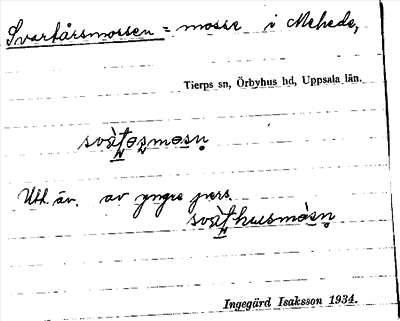 Svartåsmossen = mosse i Mehede,
Tierps sn, Örbyhus hd, Uppsala län.
Utt. äv. av yngre pers.
Ingegärd Isaksson 1934.